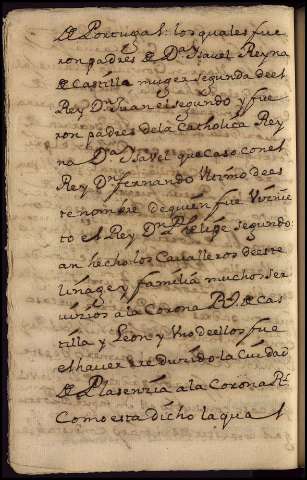 de Portugal: los quales fue
ron padres de Dª Ysavel Reyna
de Castilla muger segunda de el
Rey Dn Juan el segundo y fue
ron padres de la Catholica Rey
na Dª Ysavel que caso con el
Rey Dn fernando Vltimo de es
te nombre de quien fue Viznie
to el Rey Dn Phelipe segundo:
an hecho los Cavalleros de este
linage y familia muchos ser
vizios a la Corona Rl de Cas
tilla y Leon y Vno de ellos fue
el haver reduzido la Ciudad
de Plasenzia a la Corona Rl
Como esta dicho la qual